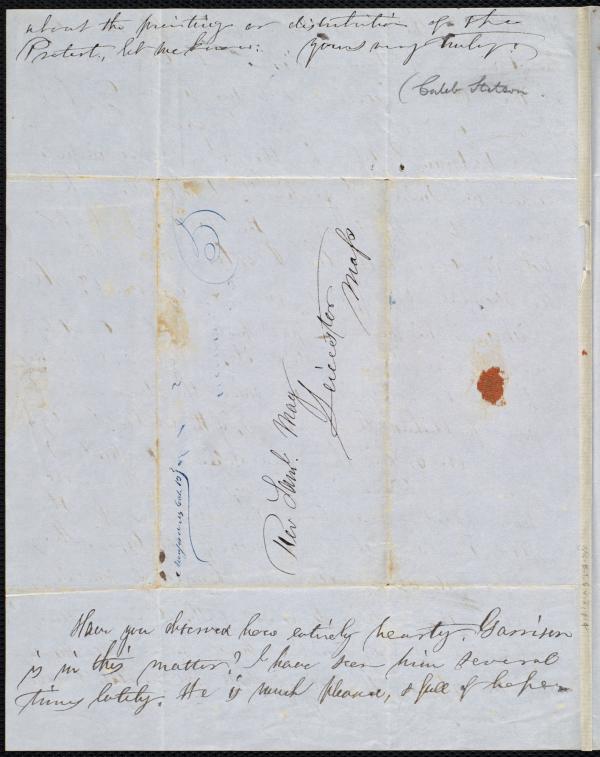 about the printing or distribution of the
Protest, let me know. Yours very truly,
(Caleb Stetson.
Rev Saml. May
Leicester
Mass
Have you observed how entirely hearty Garrison
is in this matter? I have seen him several
times lately. He is much pleased, & full of hope.